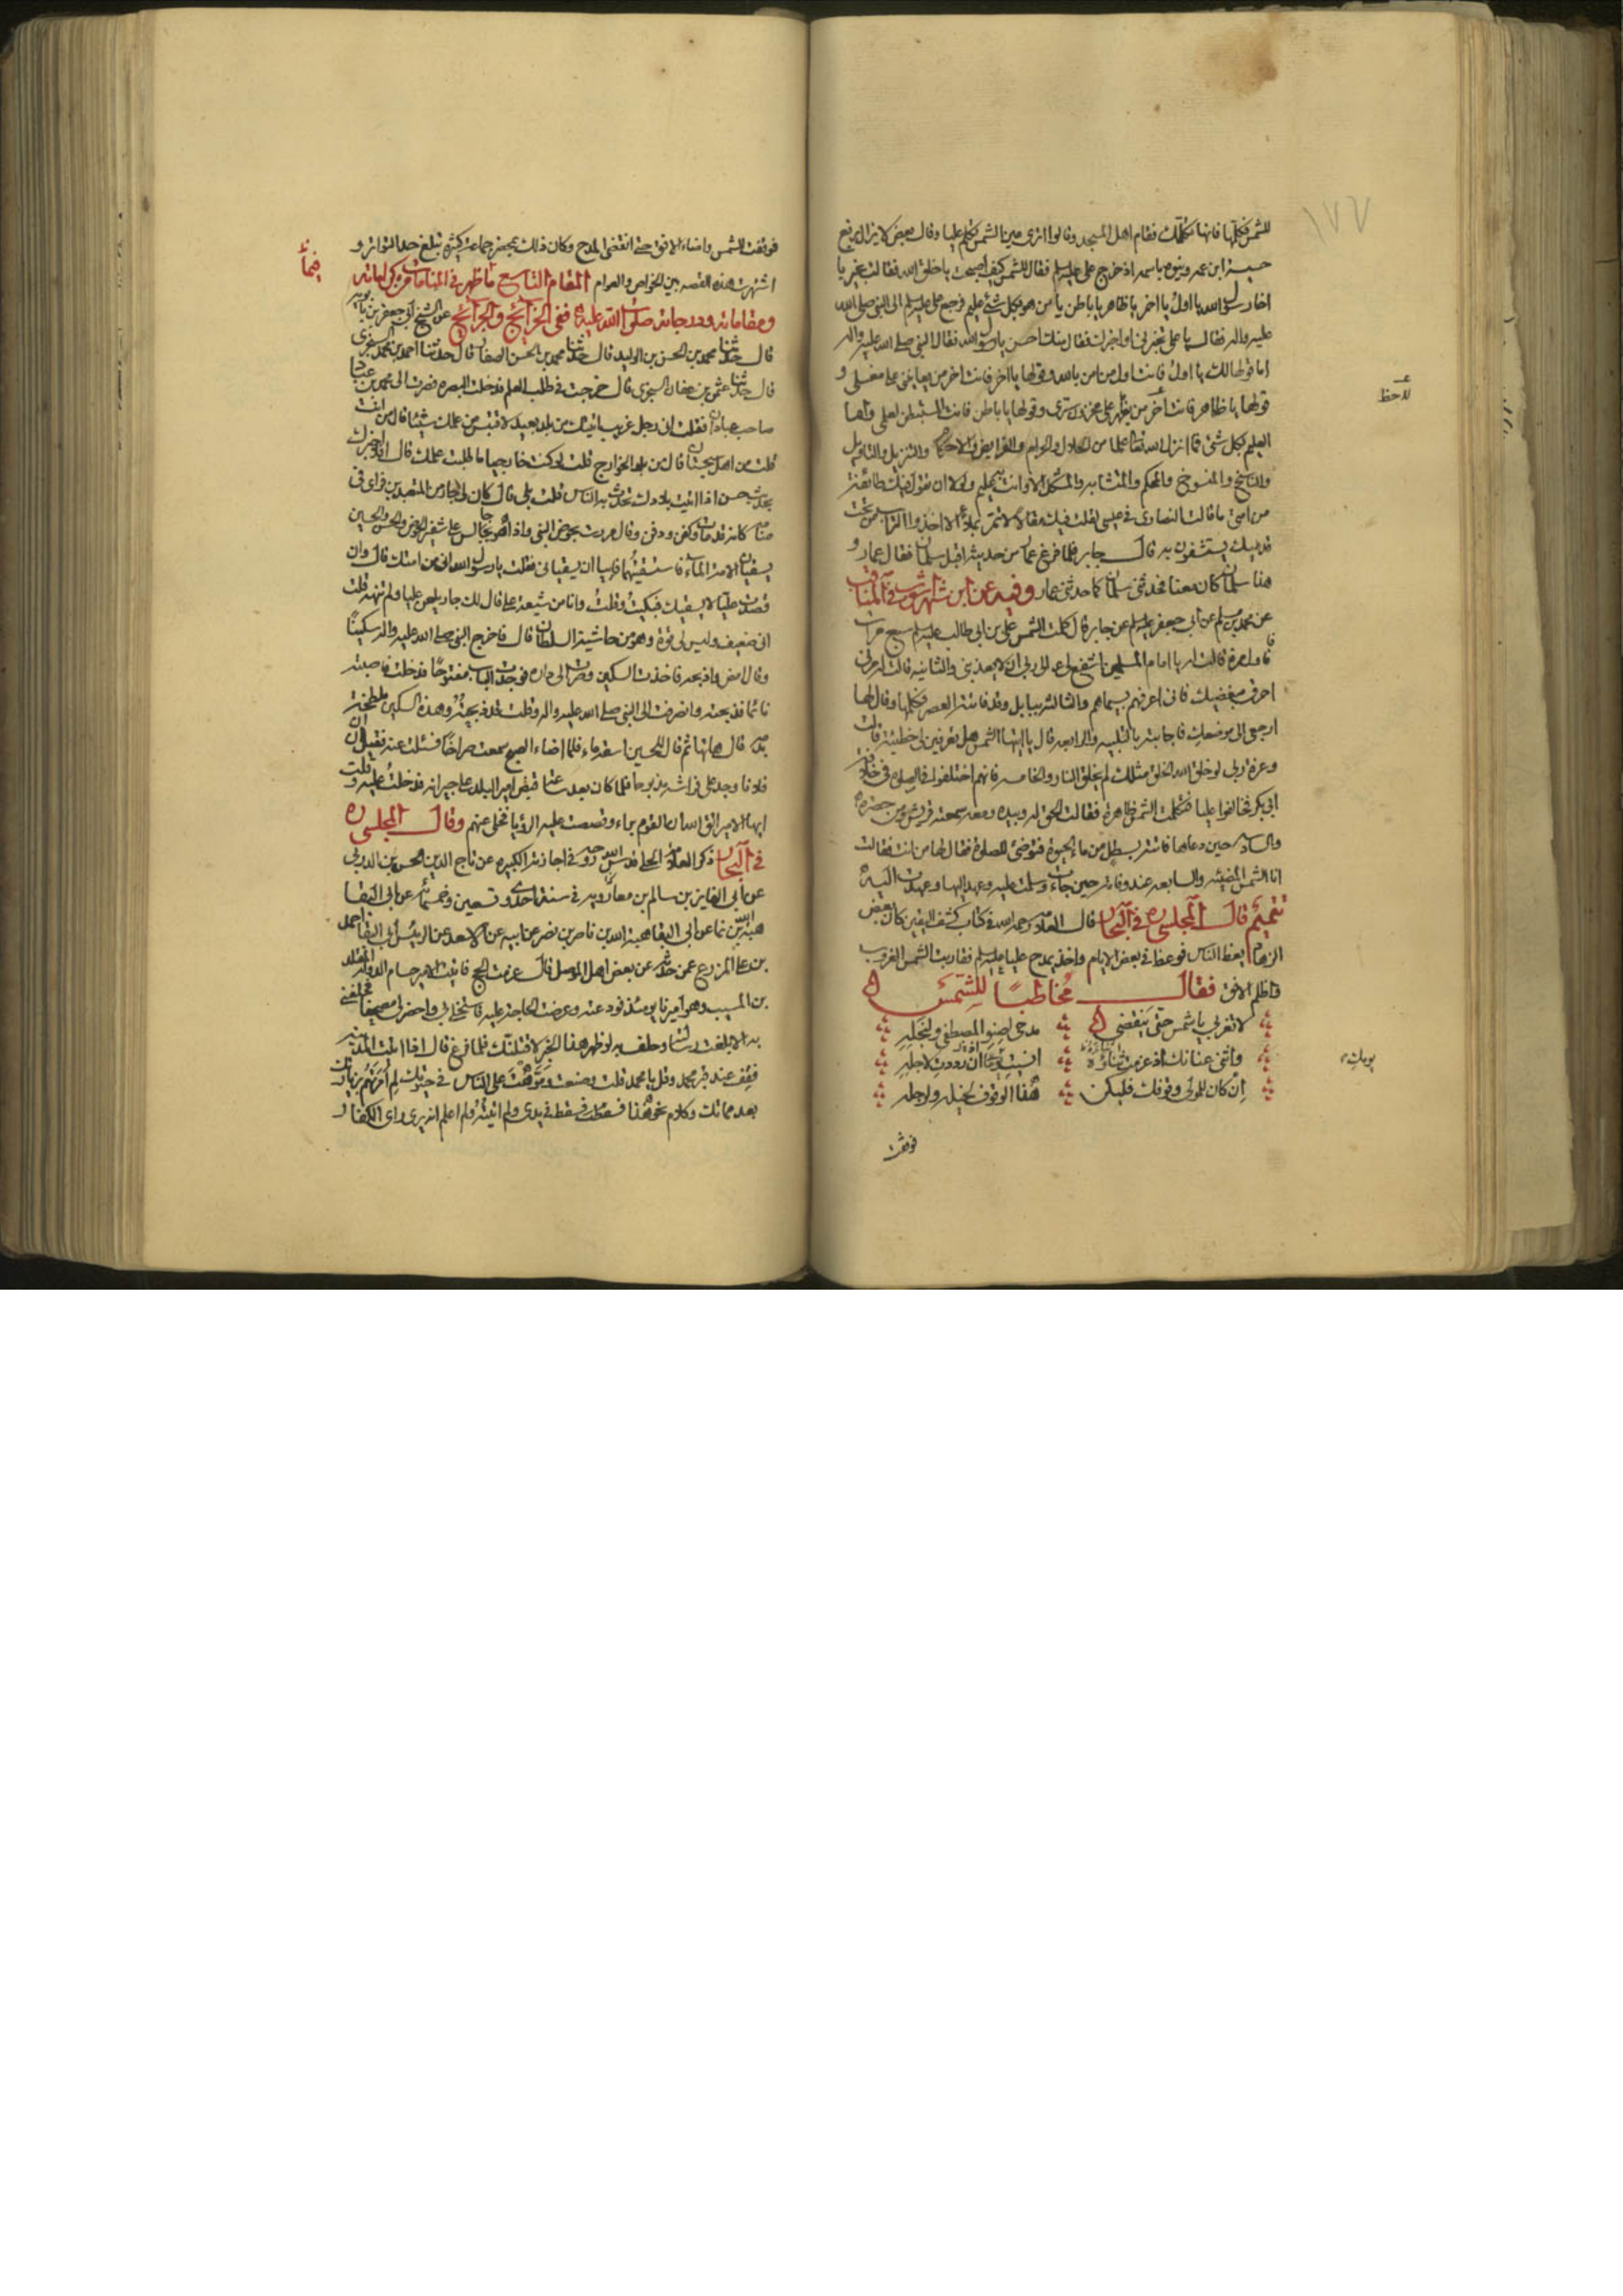 ١٧٧
للشمس فكلمها فانها تكلمك فقام اهل المسجد وقالوا اترى عين الشمس تكلم عليا وقال بعض لا يزال يرفع
حسيسة ابن عمه وينوه باسمه اذ خرج علي عليه السلام فقال للشمس كيف اصبحت يا خلق الله فقالت بخير يا
اخا رسول الله يا اول يا اخر يا ظاهر يا باطن يا من هو بكل شئ عليم فرجع علي عليه السلام الى النبي صلى الله
عليه واله فقال يا علي تخبرني او اخبرك فقال منك احسن يا رسول الله فقال النبي صلى الله عليه واله
اما قولها لك يا اول فانت اول من امن بالله وقولها يا اخر فانت اخر من يعاينني على مغسلي و
قولها يا ظاهر فانت اخر من يظهر على مخزون سري وقولها يا باطن فانت المستبطن لعلمي واما
العليم بكل شئ فما انزل الله تعالى علما من الحلال والحرام والفرايض والاحكام والتنزيل والتاويل
والناسخ والمنسوخ والمحكم والمتشابه والمشكل الا وانت به عليم ولولا ان تقول فيك طائفة
من امتي ما قالت النصارى في عيسى لقلت فيك مقالا لا تمر بملاء الا اخذوا التراب من تحت
قدميك يستشفون به قال جابر فلما فرغ عمار من حديثه اقبل سلمان فقال عمار و
هذا سلمان كان معنا فحدثني سلمان كما حدثني عمار وفيه عن ابن شهراشوب في المناقب
عن محمد بن مسلم عن ابي جعفر عليه السلام عن جابر قال كلمت الشمس علي بن ابي طالب عليه السلام سبع مرات
فاول مرة قالت له يا امام المسلمين اشفع لي الى ربي ان لا يعذبني والثانيه قالت امرني
احرق مبغضيك فاني اعرفهم بسيماهم والثالثة ببابل وقد فاتته العصر فكلمها وقال لها
ارجعي الى موضعك فاجابته بالتلبيه والرابعه قال يا ايتها الشمس هل تعرفين لي خطيئة قالت
وعزة ربي لو خلق الله الخلق مثلك لم يخلق النار والخامسه فانهم اختلفوا في الصلوة في خلافة
ابي بكر فخالفوا عليا فتكلمت الشمس ظاهرة فقالت الحق له وبيده ومعه سمعته قريش ومن حضره
والسادسه حين دعاها فاتته بسطل من ماء الحيوة فتوضئ للصلوة فقال لها من انت فقالت
انا الشمس المضيئه والسابعه عند وفاته حين جاءت وسلمت عليه وعهد اليها وعهدت اليه
تتميم قال المجلسي ره في البحار قال العلامه رحمه الله في كتاب كشف اليقين كان بعض
الزهاد يعظ الناس فوعظ في بعض الايام واخذ يمدح عليا عليه السلام فقاربت الشمس الغروب
واظلم الافق فقال مخاطبا للشمس
لا تغربي يا شمس حتى ينقضي مدحي لصنو المصطفى ولنجله
واثني عنانك اذ عزمت ثناءه انسيت يومك اذ رددت لاجله
ان كان للمولى وقوفك فليكن هذا الوقوف لخيله ولرجله
فوقفت
يومك
فوقفت الشمس واضاء الافق حتى انقضى المدح وكان ذلك بمحضر جماعة كثيرة تبلغ حد التواتر و
اشتهرت هذه القصه بين الخواص والعوام المقام التاسع ما ظهر في المنامات من كراماته
فيما
ومقاماته ودرجاته صلوات الله عليه ففي الخرائج والجرائح عن الشيخ ابي جعفر بن بابويه
قال حدثنا محمد بن الحسن بن الوليد قال حدثنا محمد بن الحسن الصفار قال حدثنا احمد بن محمد السجزي
قال حدثنا عثمن بن عفان السجزي قال خرجت في طلب العلم فدخلت البصره فصرت الى محمد بن عباد
صاحب عبادان فقلت اني رجل غريب اتيتك من بلد بعيد لاقتبس من علمك شيئا قال من انت
قلت من اهل سجستان قال من بلد الخوارج قلت لو كنت خارجيا ما طلبت علمك قال افلا اخبرك
بحديث حسن اذا اتيت بلادك تحدث به الناس قلت بلى قال كان لي جار من المتعبدين فراى في
منامه كانه قد مات وكفن ودفن وقال مررت بحوض النبي واذا هو جالس على شفير الحوض والحسن والحسين
يسقيان الامة الماء فاستسقيتهما فابيا ان يسقياني فقلت يا رسول الله اني من امتك قال وان
قصدت عليا لا يسقيك فبكيت وقلت وانا من شيعة علي قال لك جار يلعن عليا ولم تنهه قلت
اني ضعيف وليس لي قوة وهو من حاشية السلطان قال فاخرج النبي صلى الله عليه واله سكينا
وقال امض واذبحه فاخذت السكين وصرت الى داره فوجدت الباب مفتوحا فدخلت فاصبته
نائما فذبحته وانصرفت الى النبي صلى الله عليه واله وقلت قد ذبحته وهذه السكين ملطخة
بدمه قال هاتها ثم قال للحسين اسقه ماء فلما اضاء الصبح سمعت صراخا فسئلت عنه فقيل ان
فلانا وجد على فراشه مذبوحا فلما كان بعد ساعة قبض امير البلد على جيرانه فدخلت عليه وقلت
ايها الامير اتق الله ان القوم براء وقصصت عليه الرؤيا فخلى عنهم وقال المجلسي ره
في البحار ذكر العلامة الحلي قدس الله روحه في اجازته الكبيره عن تاج الدين الحسن بن الدربي
عن ابي الفايز بن سالم بن معارويه في سنة احدى وتسعين وخمسمائه عن ابي البقا
هبة الله بن نما عن ابي البقا هبة الله بن ناصر بن نصر عن ابيه عن الاسعد عن الرئيس ابي البقا احمد
بن علي المزرع عمن حدثه عن بعض اهل الموصل قال عزمت الحج فاتيت الامير حسام الدوله المقلد
بن المسيب وهو اميرنا يومئذ فودعته وعرضت الحاجة عليه فاستخلى بي واحضر لي مصحفا فحلفني
به الا بلغت رسالته وحلف به لو ظهر هذا الخبر لاقتلنك فلما فرغ قال اذا اتيت المدينه
فقف عند قبر محمد وقل يا محمد قلت وصنعت وموهت على الناس في حيوتك لم امرتهم بزيارتك
بعد مماتك وكلام نحو هذا فسقط في يدي ولم اتيته ولم اعلم انه يرى راي الكفار